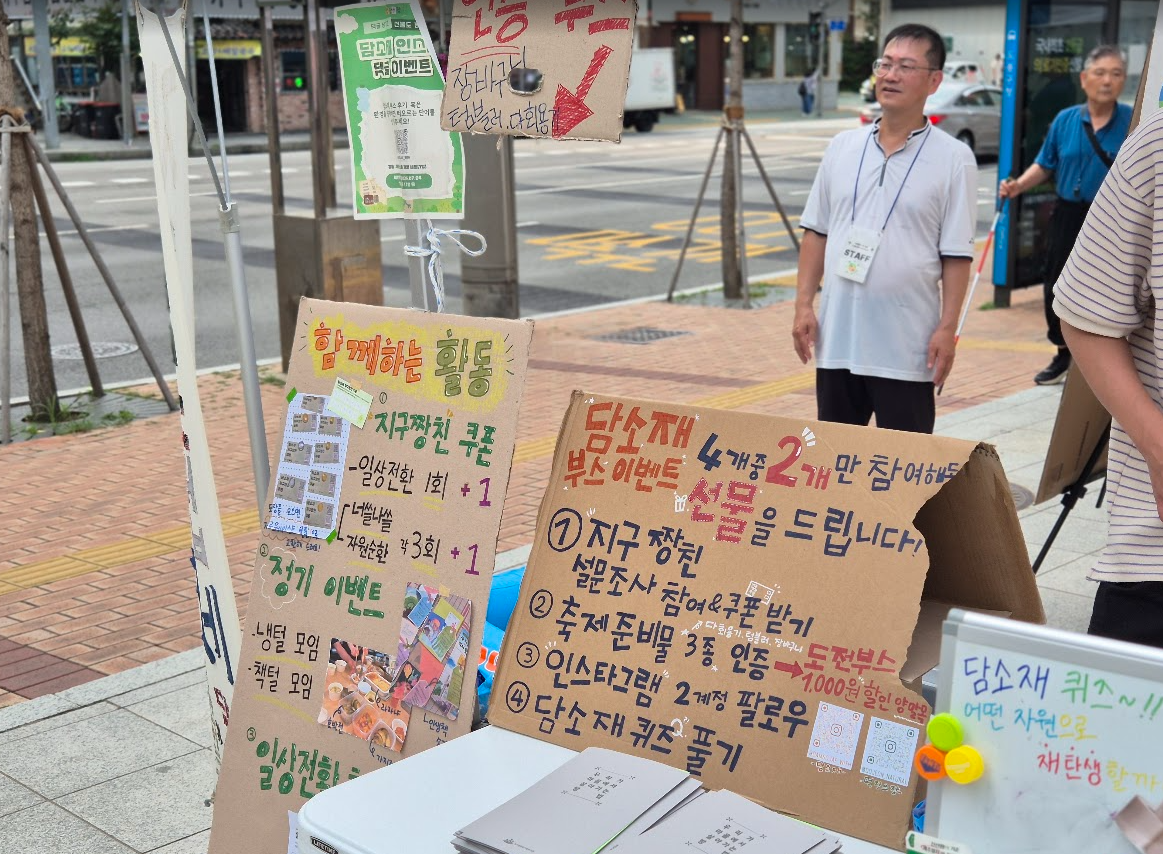 담쇄인스
댓글이벤트
인증 부스
장바구니
텀블러, 다회용기
STAFF
함께하는 활동
①
지구짱친 쿠폰
-일상전환 1회 +1
너쓸나쓸
자원순환 각 3회 +1
②
정기 이벤트
-냉털 모임
-책털 모임
③
일상전환
담소재
부스 이벤트
4개중 2개만 참여해도
선물을 드립니다!
① 지구 짱친
설문조사 참여&쿠폰 받기
② 축제준비물 3종 인증 → 도전부스
*다회용기, 텀블러, 장바구니
1,000원 할인
③ 인스타그램 2계정 팔로우
④ 담소재 퀴즈 풀기
담소재 퀴즈~!!
어떤 자원으로
재탄생 할까
LIFETIME